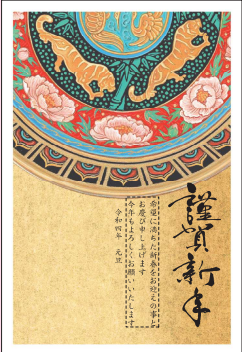 謹賀新年
希望に満ちた新春をお迎えの事と
お慶び申し上げます
今年もよろしくお願いいたします
令和四年　元旦